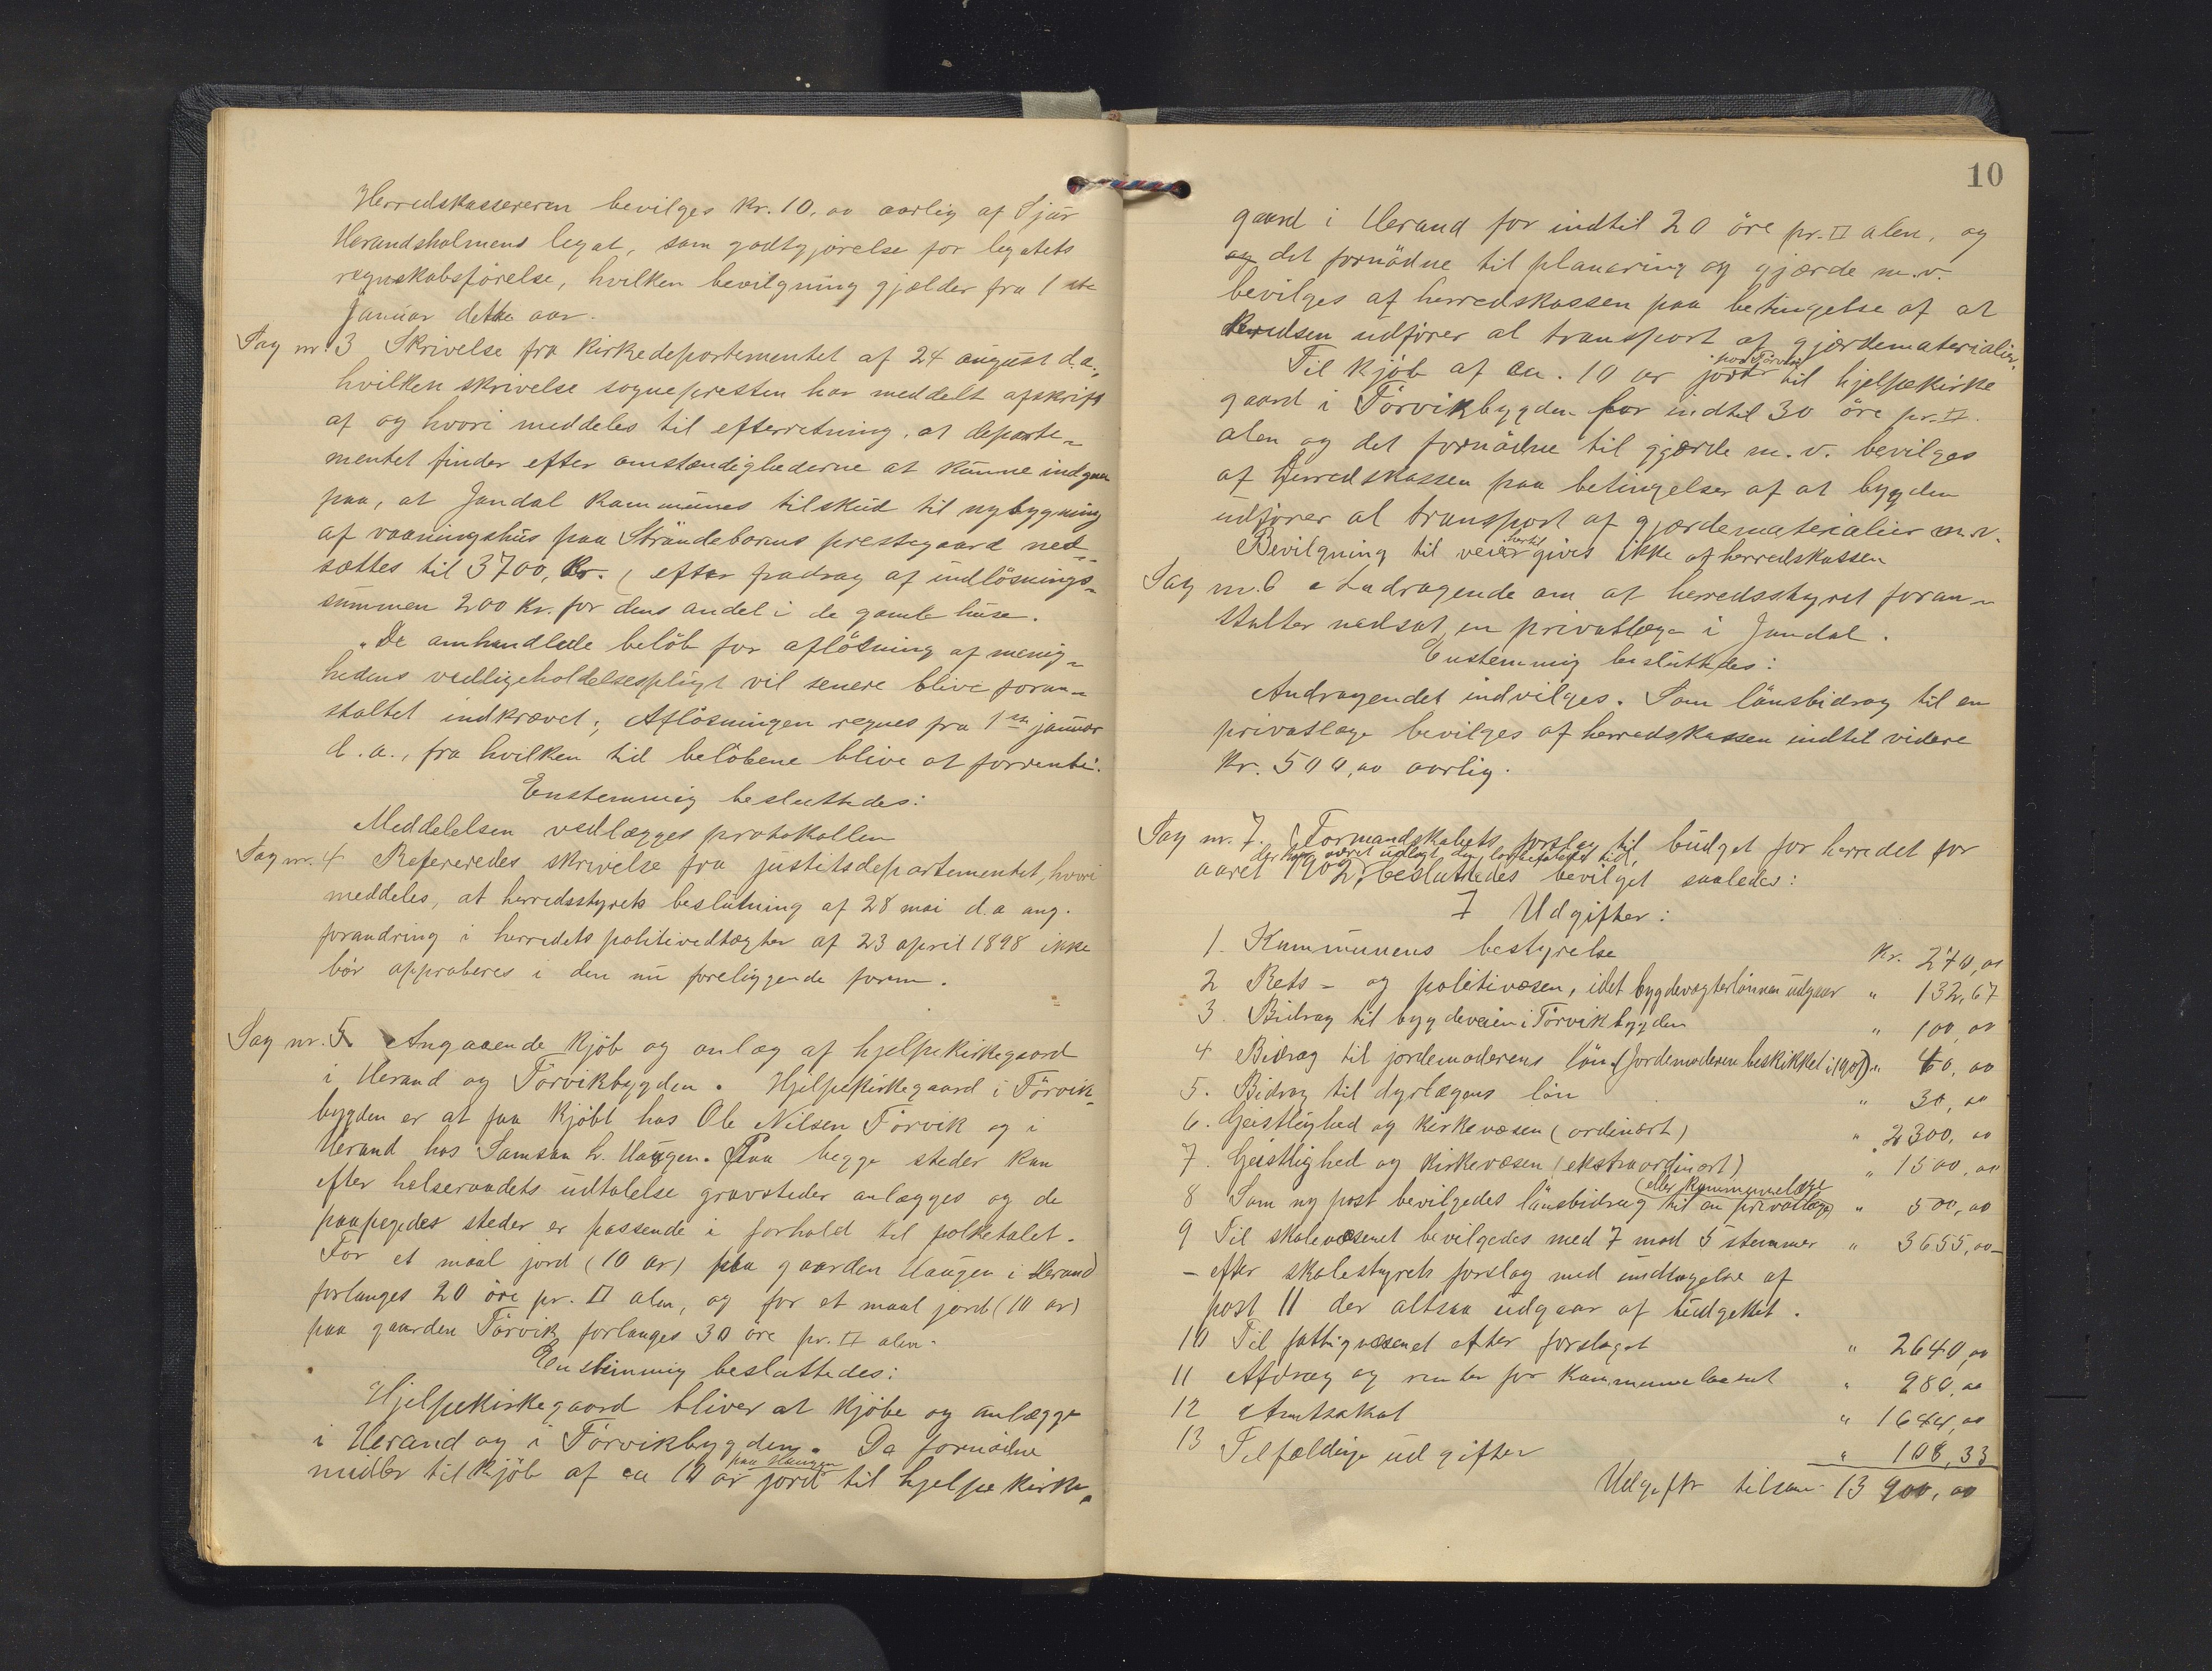 Herredskassereren bevilges Kr. 10,00 aarlig af Sjur
Herandsholmens legat, som godtgjörelse for legatets
regnskabsförelse, hvilken bevilgning gjælder fra 1ste
Januar dette aar.
Sag nr. 3 Skrivelse fra Kirkedepartementet af 24 august d.a.,
hvilken skrivelse sognepresten har meddelt afskrift
af og hvori meddeles til efterretning, at departe-
mentet finder efter omstændighederne at kunne indgaa
paa, at Jondal Kommunes tilskud til nybygning
af vaaningshus paa Strandebarms prestegaard ned-
sættes til 3700, Kr. (efter fradrag af indlösnings-
summen 200 Kr. for dens andel i de gamle huse.
"De omhandlede belöb for aflösning af menig-
hedens vedligeholdelsespligt vil senere blive foran-
staltet indkrævet; Aflösningen regnes fra 1ste januar
d.a., fra hvilken tid belöbene blive at forrente".
Enstemmig besluttedes:
Meddelelsen vedlægges protokollen
Sag nr. 4 Refereredes skrivelse fra justitsdepartementet, hvori
meddeles, at herredsstyrets beslutning af 28 mai d.a ang.
forandring i herredets politivedtægter af 23 april 1898 ikke
bör approberes i den nu foreliggende form.
Sag nr. 5. Angaaende Kjöb og anlæg af hjelpekirkegaard
i Herand og Törvikbygden. Hjelpekirkegaard i Törvik-
bygden er at faa Kjöbt hos Ole Nilsen Törvik og i
Herand hos Samson L. Haugen. Paa begge steder kan
efter helseraadets udtalelse gravsteder anlægges og de
paapegede steder er passende i forhold til folketalet.
For et maal jord (10 ar) paa gaarden Haugen i Herand
forlanges 20 öre pr. □ alen, og for et maal jord (10 ar)
paa gaarden Törvik forlanges 30 öre pr. □ alen.
Enstemmig besluttedes:
Hjelpekirkegaard bliver at Kjöbe og anlægge
i Herand og i Törvikbygden. De fornödne
paa Haugen
midler til Kjöb af ca 10 ar jord til hjelpekirke-
10
gaard i Herand for indtil 20 öre pr. □ alen, og
og det fornödne til planering og gjærde m.v.
bevilges af herredskassen paa betingelse af at
Kredsen udförer al transport af gjærdematerialier.
paa Törvik
Til Kjöb af ca. 10 ar jord til hjelpekirke
gaard i Törvikbygden for indtil 30 öre pr. □.
alen og det fornödne til gjærde m.v. bevilges
af Herredskassen paa betingelser af at bygden
udförer al transport af gjærdematerialier m.v.
hertil
Bevilgning til veier gives ikke af herredskassen
Sag nr. 6 Andragende om at herredsstyret foran-
stalter nedsat en privatlæge i Jondal.
Enstemmig besluttedes:
Andragendet indvilges. Som lönsbidrag til en
privatlæge bevilges af herredskassen indtil videre
Kr. 500,00 aarlig.
Sag nr. 7. Formandskabets forslag til budget for herredet for
der har været udlagt den lovbefalede tid,
aaret 1902, besluttedes bevilget saaledes:
I Udgifter:
1. Kommunens bestyrelse Kr. 270,00
2 Rets- og politivæsen, idet bygdevægterlönnen udgaar " 132,67
3. Bidrag til bygdeveien i Törvikbygden " 100,00
4 Bidrag til jordemoderens lön (Jordemoderen beskikket i 1901) " 40,00
5. Bidrag til dyrlægens lön " 30,00
6. Geistlighed og Kirkevæsen (ordinært) " 2300,00
7. Geistlighed og Kirkevæsen (ekstraordinært) " 1500,00
(eller Kommunelæge
8 Som ny post bevilgedes lönsbidrag til en privatlæge) " 500,00
9 Til skolevæsenet bevilgedes med 7 mod 5 stemmer " 3655,00
- efter skolestyrets forslag med undtagelse af
post 11 der altsaa udgaar af budgettet.
10 Til fattigvæsenet efter forslaget " 2640,00
11 Afdrag og renter for Kommunelaanet " 980,00
12 Amtsskat " 1644,00
13 Tilfældige udgifter " 108,33
Udgifter tilsam. 13 900,00